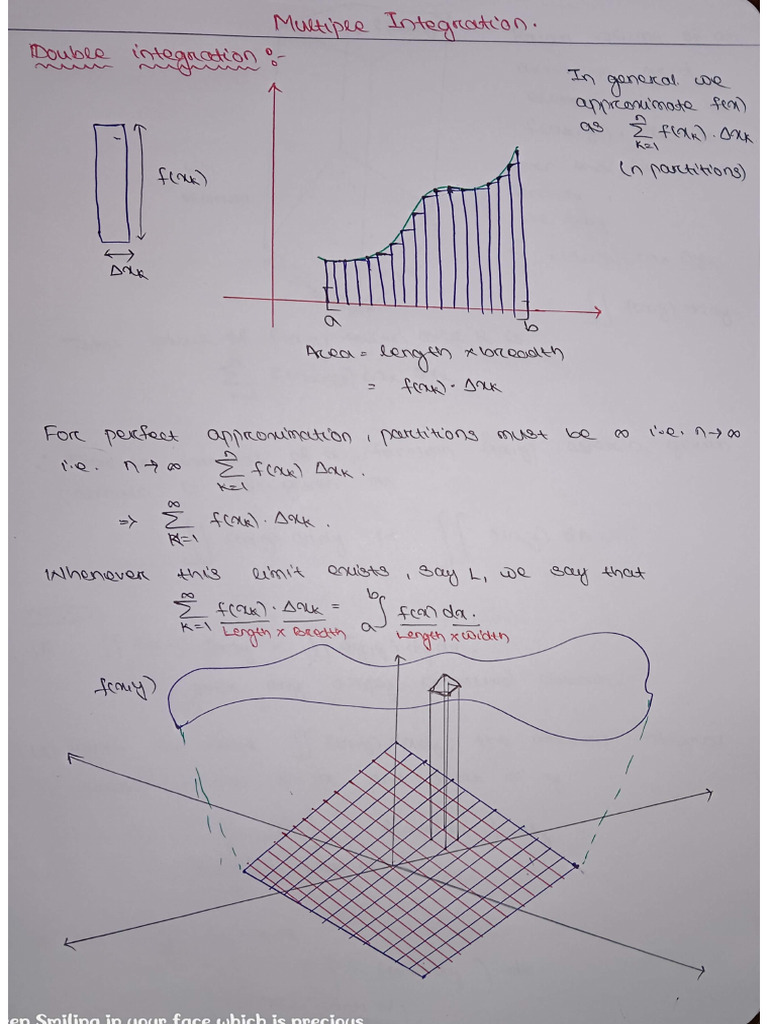 Multiple Integration.
Double integration :-
In general we
approximate f(x)
as ∑ₖ₌₁ⁿ f(xₖ)·Δxₖ
(n partitions)
f(xₖ)
Δxₖ
a
b
Area = length × breadth
= f(xₖ)·Δxₖ
For perfect approximation, partitions must be ∞ i.e. n→∞
i.e. n→∞ ∑ₖ₌₁ⁿ f(xₖ) Δxₖ.
=> ∑ₖ₌₁^∞ f(xₖ)·Δxₖ.
Whenever this limit exists, say L, we say that
∑ₖ₌₁^∞ f(xₖ)·Δxₖ = ∫ₐᵇ f(x) dx.
Length × Bredth Length × Width
f(x,y)
en Smiling in your face which is precious